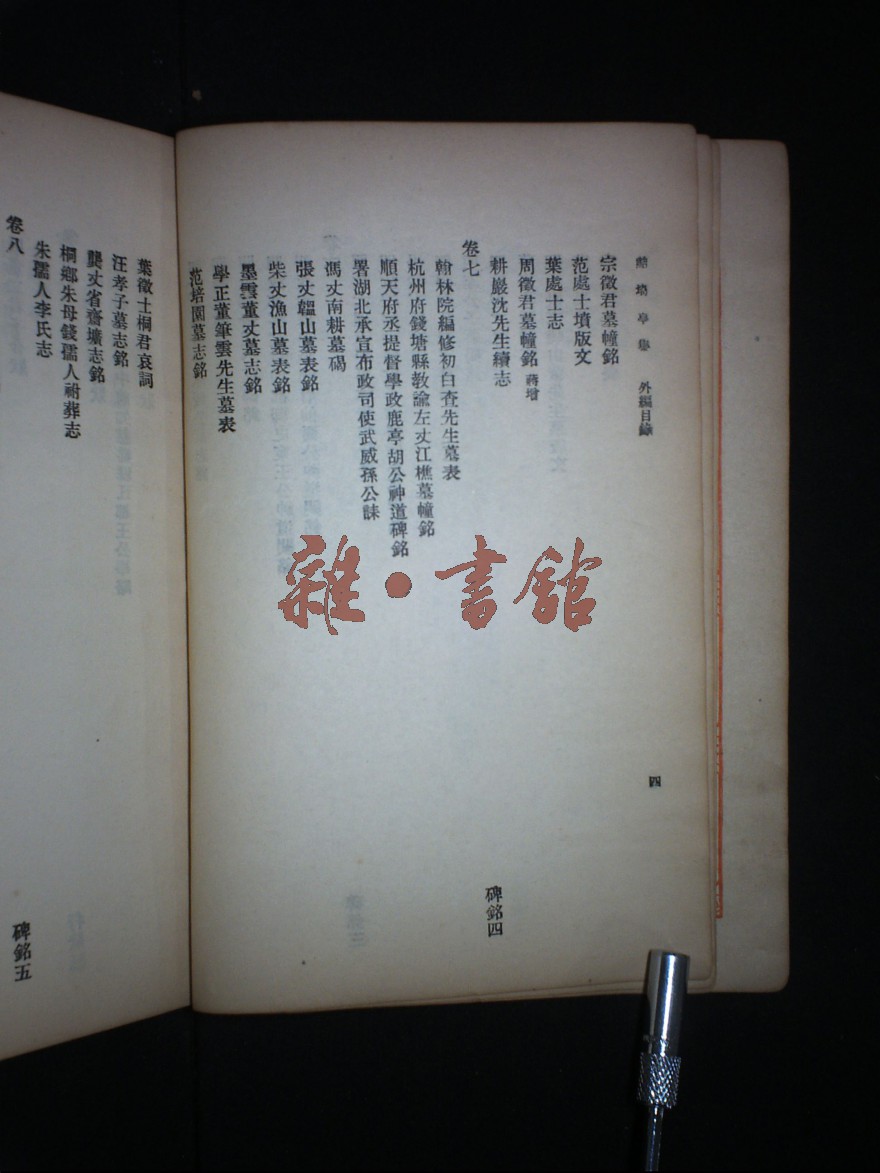 鮚埼亭集 外編目錄
四
宗徵君墓幢銘
范處士墳版文
葉處士志
周徵君墓幢銘 蔣增
耕巖沈先生續志
卷七 碑銘四
翰林院編修初白查先生墓表
杭州府錢塘縣教諭左丈江樵墓幢銘
順天府丞提督學政鹿亭胡公神道碑銘
署湖北承宣布政司使武威孫公誄
馮丈南耕墓碣
張丈韞山墓表銘
柴丈漁山墓表銘
墨雲董丈墓志銘
學正董筆雲先生墓表
范培園墓志銘
葉徵士桐君哀詞
汪孝子墓志銘
龔丈省齋壙志銘
桐鄉朱母錢孺人祔葬志
朱孺人李氏志
卷八 碑銘五
雜·書館